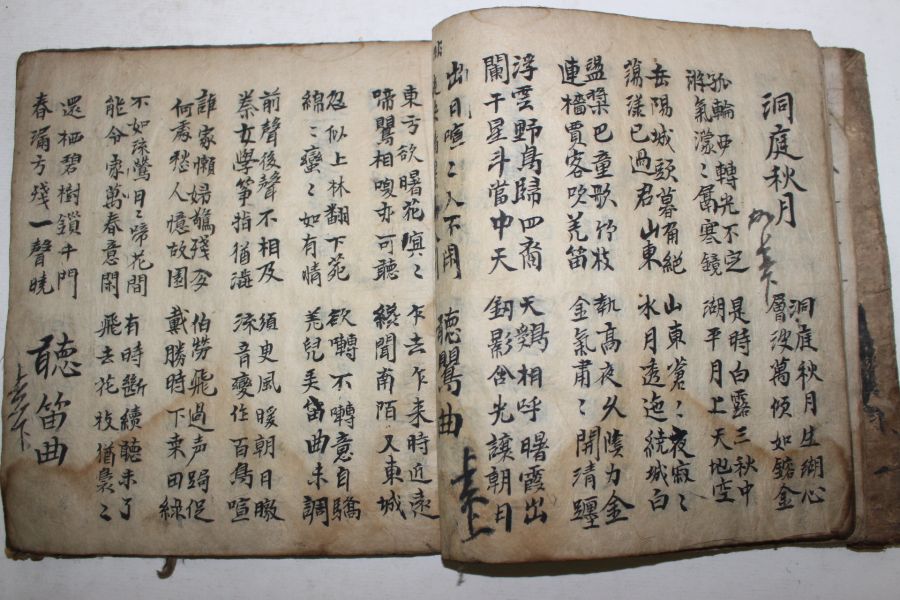 洞庭秋月
洞庭秋月生湖心
層波萬傾如鎔金
孤輪乍轉光不定
游氣濛〻隔寒鏡
是時白露三秋中
湖平月上天地空
岳陽城頭暮角絕
蕩漾已過君山東
山東蒼〻夜寂〻
水月逶迤繞城白
盪槳巴童歌竹枝
連檣賈客吹羌笛
埶高夜久陰力金
金氣肅〻開清躔
浮雲野馬歸四裔
闌干星斗當中天
天鷄相呼曙霞出
釼影含光讓朝日
出日喧〻人不閑
聽鶯曲
東方欲曙花冥〻
啼鶯相喚亦可聽
乍去乍來時近遠
纔聞南陌又東城
忽似上林翻下苑
綿〻蠻〻如有情
欲囀不囀意自驕
羌兒弄笛曲未調
前聲後聲不相及
秦女學箏指猶澁
須臾風暖朝日暾
流音變作百鳥喧
誰家懶婦驚殘夢
何處愁人憶故園
伯勞飛過声跼促
戴勝時下桒田綠
不如流鶯日〻啼花間
能令家萬春意閑
有時斷續聽未了
飛去花枝猶裊〻
還栖碧樹鎖千門
春漏方殘一聲曉
聽笛曲